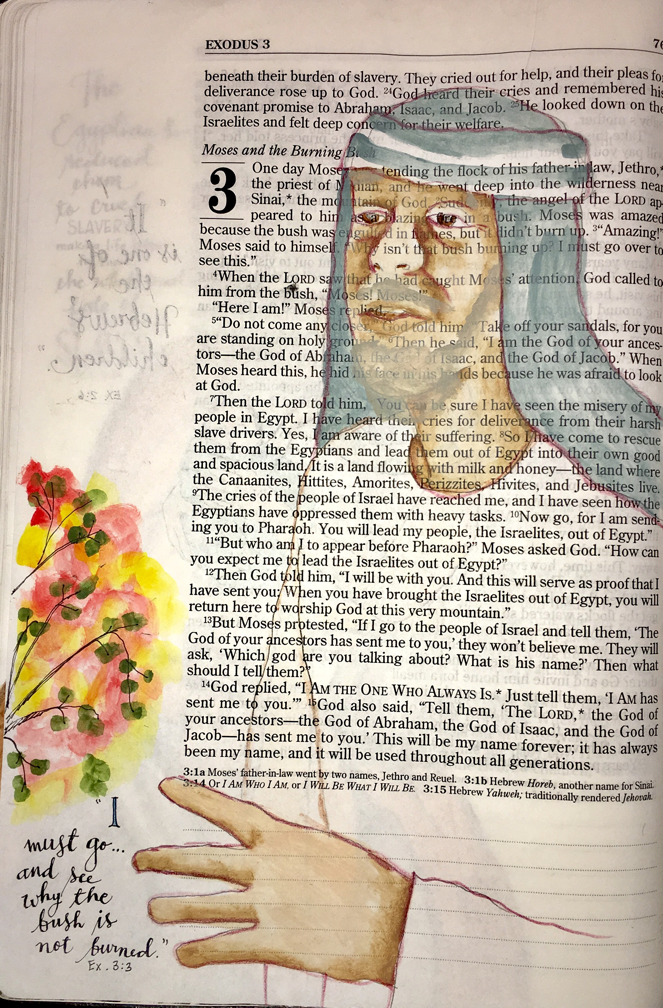 EXODUS 3
76
beneath their burden of slavery. They cried out for help, and their pleas fo
deliverance rose up to God. 24God heard their cries and remembered his
covenant promise to Abraham, Isaac, and Jacob. 25He looked down on the
Israelites and felt deep concern for their welfare.
Moses and the Burning Bush
3 One day Moses tending the flock of his father-in-law, Jethro,*
the priest of Midian, and he went deep into the wilderness near
Sinai,* the mountain of God. 2Suddenly, the angel of the LORD ap-
peared to him as a blazing fire in a bush. Moses was amazed
because the bush was engulfed in flames, but it didn't burn up. 3"Amazing!"
Moses said to himself. "Why isn't that bush burning up? I must go over to
see this."
4When the LORD saw that he had caught Moses' attention, God called to
him from the bush, "Moses! Moses!"
"Here I am!" Moses replied.
5"Do not come any closer," God told him. "Take off your sandals, for you
are standing on holy ground." 6Then he said, "I am the God of your ances-
tors—the God of Abraham, the God of Isaac, and the God of Jacob." When
Moses heard this, he hid his face in his hands because he was afraid to look
at God.
7Then the LORD told him, "You can be sure I have seen the misery of my
people in Egypt. I have heard their cries for deliverance from their harsh
slave drivers. Yes, I am aware of their suffering. 8So I have come to rescue
them from the Egyptians and lead them out of Egypt into their own good
and spacious land. It is a land flowing with milk and honey—the land where
the Canaanites, Hittites, Amorites, Perizzites, Hivites, and Jebusites live.
9The cries of the people of Israel have reached me, and I have seen how the
Egyptians have oppressed them with heavy tasks. 10Now go, for I am send-
ing you to Pharaoh. You will lead my people, the Israelites, out of Egypt."
11"But who am I to appear before Pharaoh?" Moses asked God. "How can
you expect me to lead the Israelites out of Egypt?"
12Then God told him, "I will be with you. And this will serve as proof that I
have sent you: When you have brought the Israelites out of Egypt, you will
return here to worship God at this very mountain."
13But Moses protested, "If I go to the people of Israel and tell them, 'The
God of your ancestors has sent me to you,' they won't believe me. They will
ask, 'Which god are you talking about? What is his name?' Then what
should I tell them?"
14God replied, "I AM THE ONE WHO ALWAYS IS.* Just tell them, 'I AM has
sent me to you.'" 15God also said, "Tell them, 'The LORD,* the God of
your ancestors—the God of Abraham, the God of Isaac, and the God of
Jacob—has sent me to you.' This will be my name forever; it has always
been my name, and it will be used throughout all generations.
3:1a Moses' father-in-law went by two names, Jethro and Reuel. 3:1b Hebrew Horeb, another name for Sinai.
3:14 Or I AM WHO I AM, or I WILL BE WHAT I WILL BE. 3:15 Hebrew Yahweh; traditionally rendered Jehovah.
The
Egyptians
to cruel
SLAVERY
"It
is one of
the
Hebrews'
children."
EX 2:6
"I
must go...
and see
why the
bush is
not burned."
Ex. 3:3